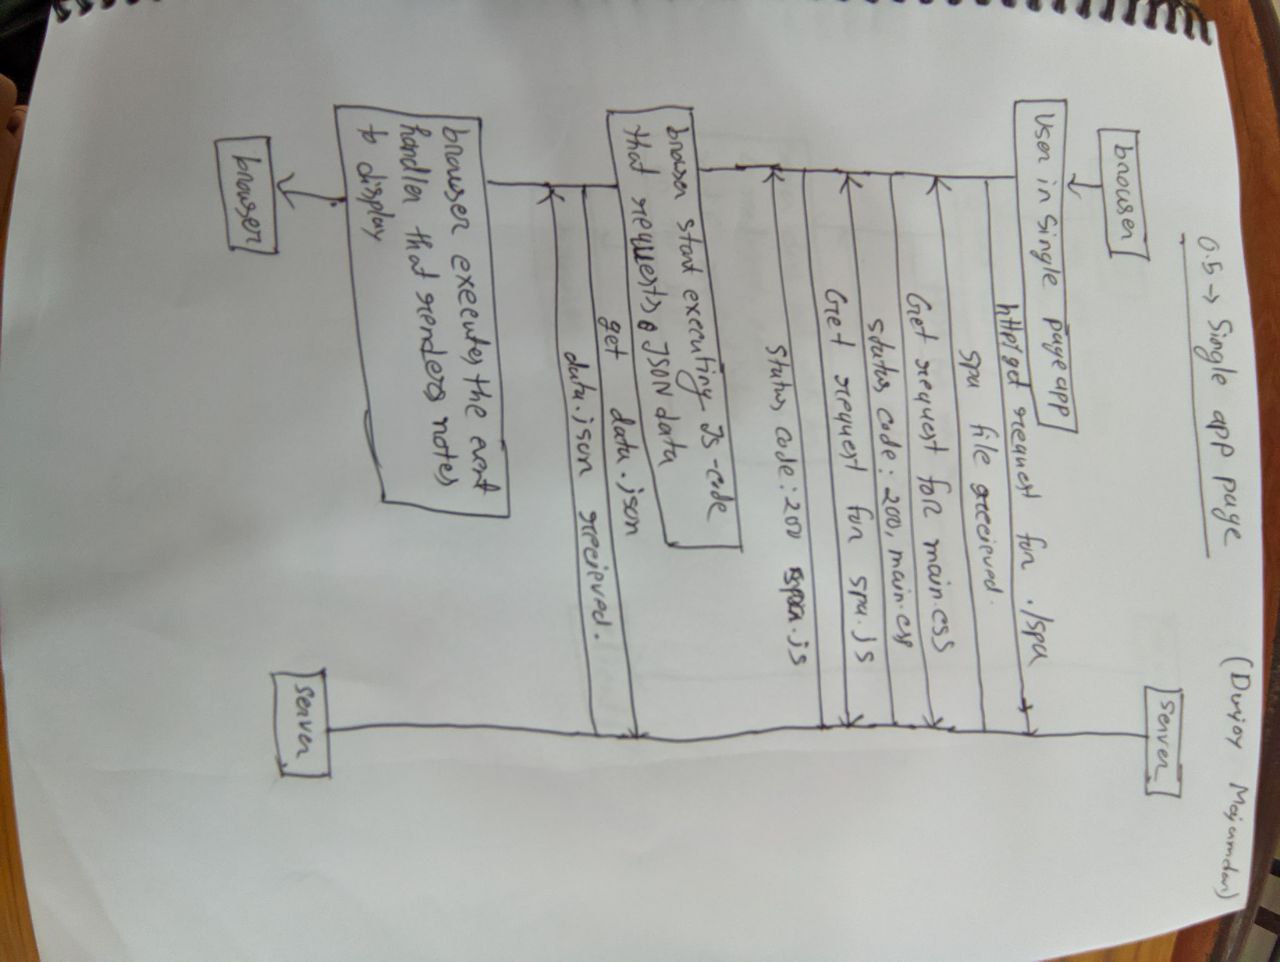 0.5 → Single app page
(Durjoy Majumdar)
browser
server
User in Single page app
http get request for ./spa
spa file recieved.
Get request for main.css
status code: 200, main.css
Get request for spa.js
Status code: 200 spa.js
browser start executing JS-code
that requests JSON data
get data.json
data.json recieved.
browser executes the event
handler that renders notes
to display
browser
server